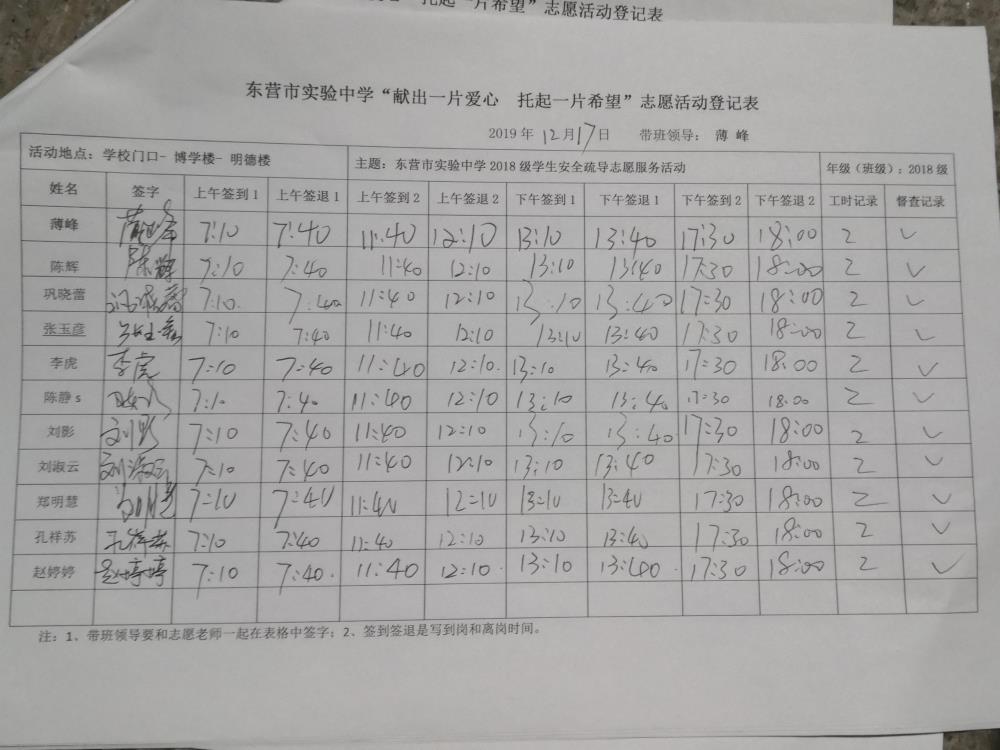 托起一片希望”志愿活动登记表
东营市实验中学“献出一片爱心 托起一片希望”志愿活动登记表
2019年12月17日 带班领导：薄峰
活动地点：学校门口-博学楼-明德楼 主题：东营市实验中学2018级学生安全疏导志愿服务活动 年级（班级）：2018级
姓名 签字 上午签到1 上午签退1 上午签到2 上午签退2 下午签到1 下午签退1 下午签到2 下午签退2 工时记录 督查记录
薄峰 7:10 7:40 11:40 12:10 13:10 13:40 17:30 18:00 2 ✓
陈辉 陈辉 7:10 7:40 11:40 12:10 13:10 13:40 17:30 18:00 2 ✓
巩晓蕾 7:10 7:40 11:40 12:10 13:10 13:40 17:30 18:00 2 ✓
张玉彦 7:10 7:40 11:40 12:10 13:10 13:40 17:30 18:00 2 ✓
李虎 李虎 7:10 7:40 11:40 12:10 13:10 13:40 17:30 18:00 2 ✓
陈静s 7:10 7:40 11:40 12:10 13:10 13:40 17:30 18:00 2 ✓
刘影 刘影 7:10 7:40 11:40 12:10 13:10 13:40 17:30 18:00 2 ✓
刘淑云 刘淑云 7:10 7:40 11:40 12:10 13:10 13:40 17:30 18:00 2 ✓
郑明慧 7:10 7:40 11:40 12:10 13:10 13:40 17:30 18:00 2 ✓
孔祥苏 孔祥苏 7:10 7:40 11:40 12:10 13:10 13:40 17:30 18:00 2 ✓
赵婷婷 赵婷婷 7:10 7:40 11:40 12:10 13:10 13:40 17:30 18:00 2 ✓
注：1、带班领导要和志愿老师一起在表格中签字；2、签到签退是写到岗和离岗时间。